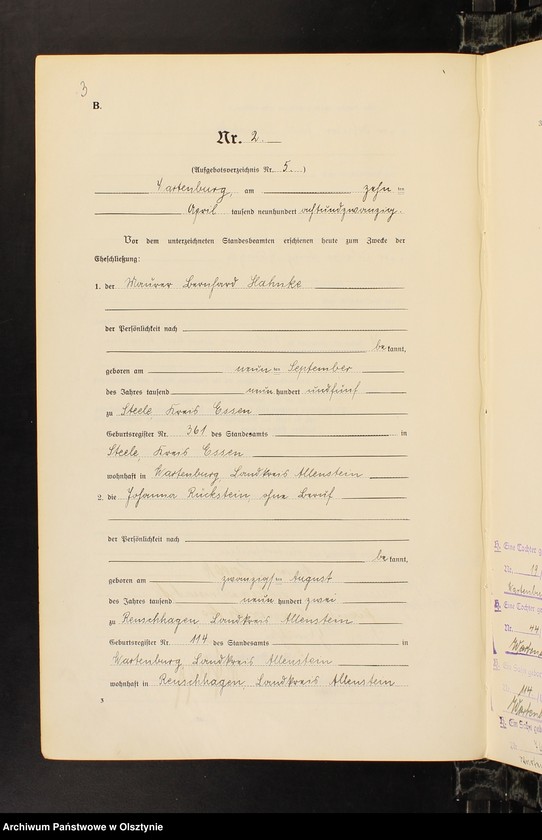 3
B.
Nr. 2.
(Aufgebotsverzeichnis Nr. 5.)
Wartenburg, am zehnten
April tausend neunhundert achtundzwanzig.
Vor dem unterzeichneten Standesbeamten erschienen heute zum Zwecke der
Eheschließung:
1. der Maurer Bernhard Hahnke
der Persönlichkeit nach
bekannt,
geboren am neunten September
des Jahres tausend neunhundert undfünf
zu Steele, Kreis Essen
Geburtsregister Nr. 361 des Standesamts in
Steele, Kreis Essen
wohnhaft in Wartenburg, Landkreis Allenstein
2. die Johanna Rückstein, ohne Beruf
der Persönlichkeit nach
bekannt,
geboren am zwanzigsten August
des Jahres tausend neunhundert zwei
zu Reuschhagen Landkreis Allenstein
Geburtsregister Nr. 114 des Standesamts in
Wartenburg, Landkreis Allenstein
wohnhaft in Reuschhagen, Landkreis Allenstein
3
Eine Tochter
Nr. 13
Eine Tochter
Nr. 44
114
Ein Sohn
Archiwum Państwowe w Olsztynie